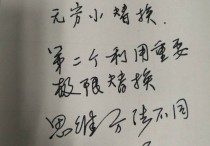 无穷小替换.
第二个利用重要
极限替换
思维方法不同